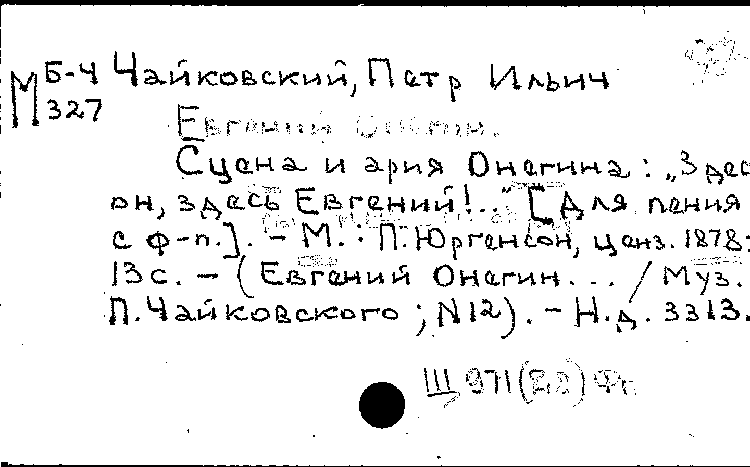 Б-4 Чайковский, Петр Ильич
М 327
Евгений Онегин.
Сцена и ария Онегина: „Здес
он, здесь Евгений!..." [Для пения
с ф-п.]. - М.: П. Юргенсон, ценз. 1878.
13 с. - (Евгений Онегин... / Муз.
П. Чайковского; N12). - Н.д. 3313.
Щ 971